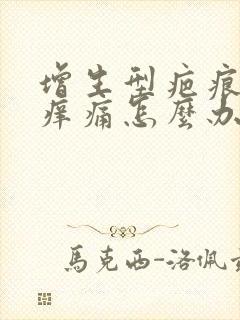 增生型疤痕
痒痛怎麼办
馬克西-洛佩兹